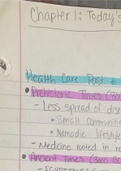 Chapter 1: Today's
Health Care Past &
• Prehistoric Times (
- Less spread of dise
• Small communit
• Nomadic lifestyl
- Medicine noted in r
• Ancient Times (3000 B